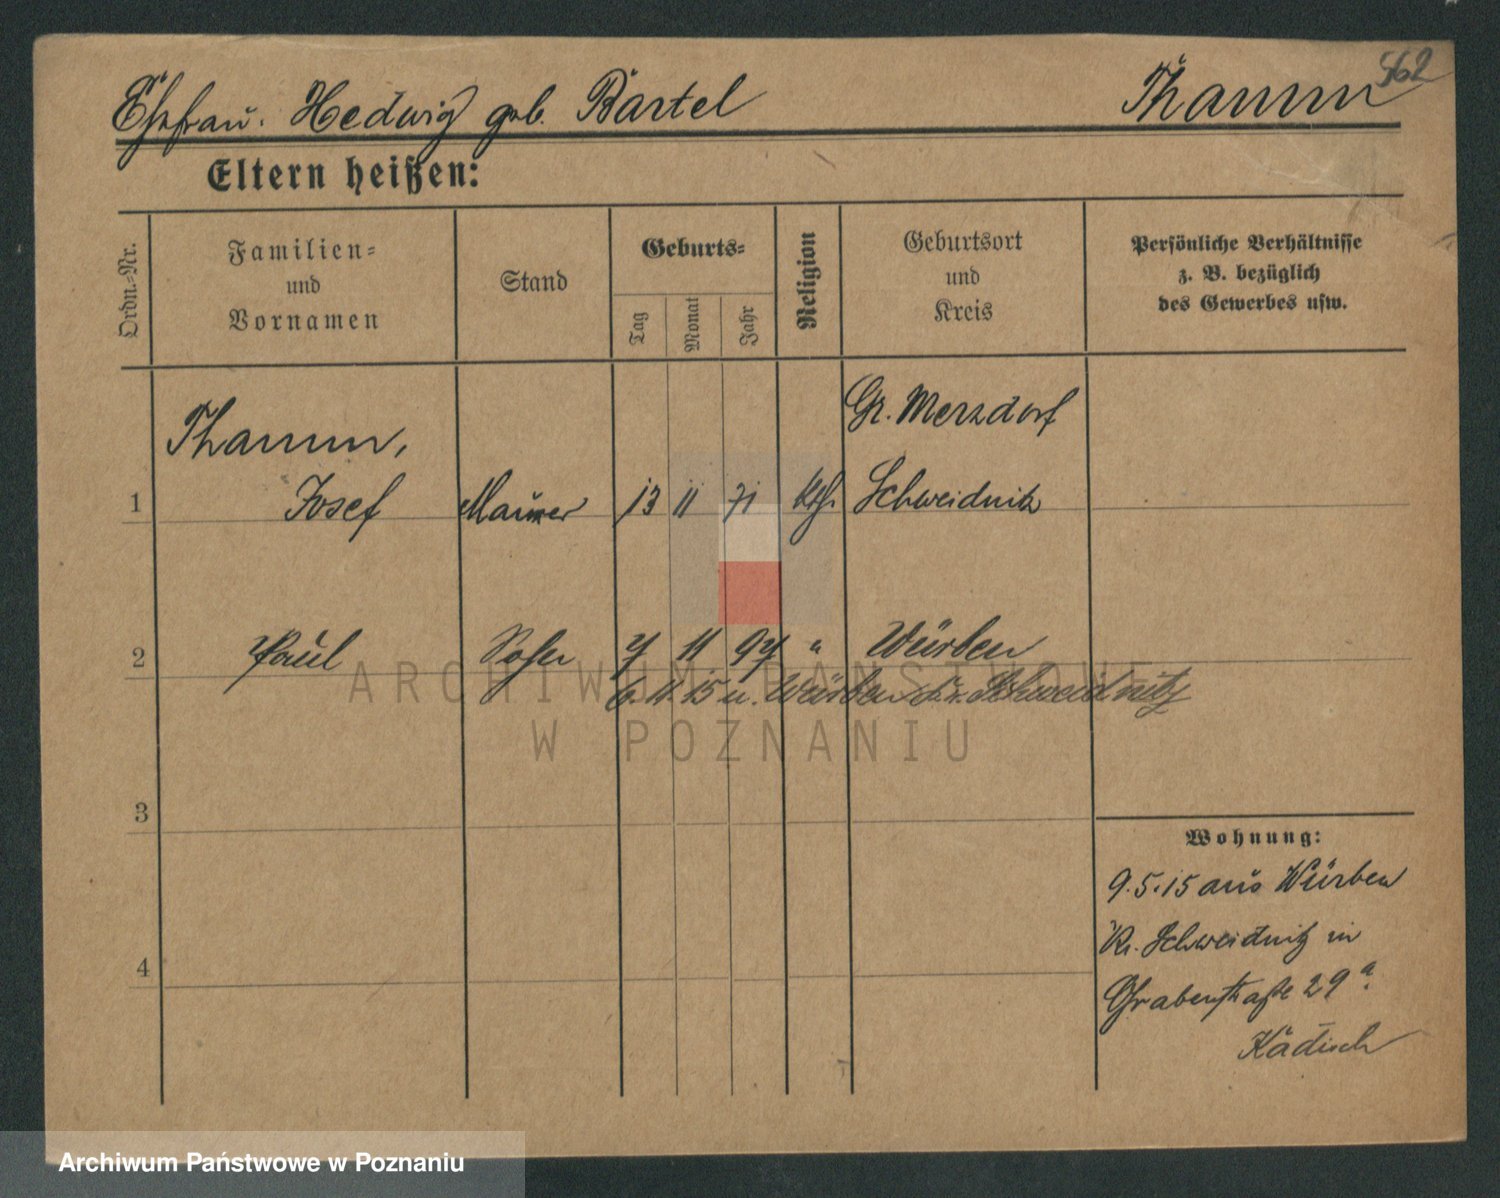 562
Ehefrau: Hedwig geb. Bartel Thamm
Eltern heißen:
Ordn.-Nr.
Familien-
und
Vornamen
Stand
Geburts-
Tag
Monat
Jahr
Religion
Geburtsort
und
Kreis
Persönliche Verhältnisse
z. B. bezüglich
des Gewerbes usw.
Thamm, Gr. Merzdorf
1 Josef Maurer 13 11 71 kth. Schweidnitz
2 Paul Sohn 7 11 97 " Würben
6. 11. 15 u. Würben Kr. Schweidnitz
3
4
Wohnung:
9.5.15 aus Würben
Kr. Schweidnitz in
Grabenstraße 29a.
Kädisch
ARCHIWUM PAŃSTWOWE
W POZNANIU
Archiwum Państwowe w Poznaniu